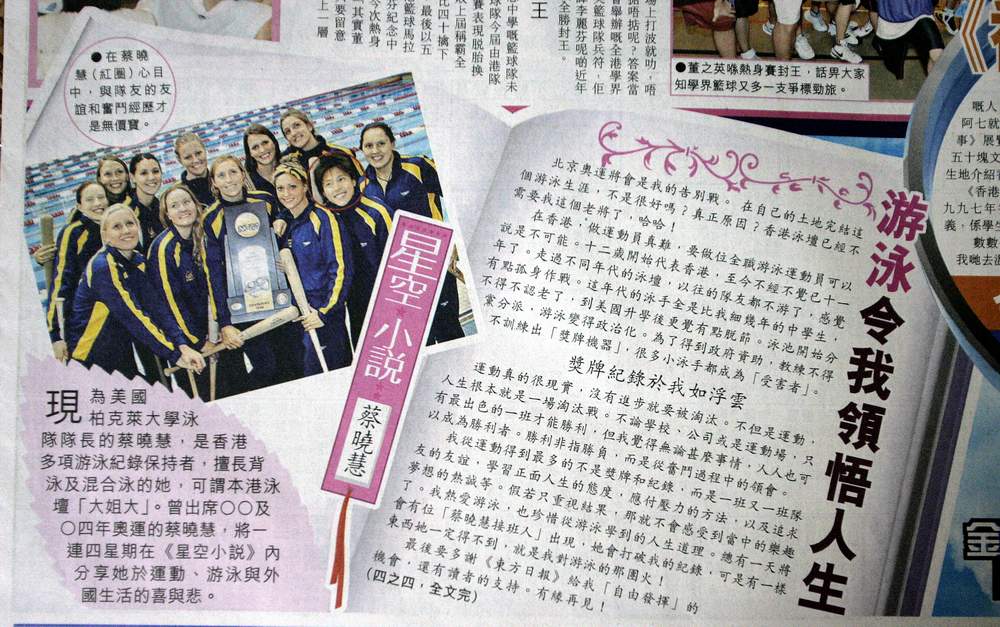 場上打波就叻，唔
王
●在蔡曉
慧（紅圈）心目
中，與隊友的友
誼和奮鬥經歷才
是無價寶。
●董之英喺熱身賽封王，話畀大家
知學界籃球又多一支爭標勁旅。
游泳令我領悟人生
北京奧運將會是我的告別戰。在自己的土地完結這
個游泳生涯，不是很好嗎？真正原因？香港泳壇已經不
需要我這個老將了，哈哈！
在香港，做運動員真難，要做位全職游泳運動員可以
說是不可能。十二歲開始代表香港，至今不經不覺已十一
年了。走過不同年代的泳壇，以往的隊友都不游了，感覺
有點孤身作戰。這年代的泳手全是比我細幾年的中學生，
不得不認老了，到美國升學後更覺有點脫節。泳池開始分
黨分派，游泳變得政治化。為了得到政府資助，教練不得
不訓練出「獎牌機器」，很多小泳手都成為「受害者」。
獎牌紀錄於我如浮雲
運動真的很現實，沒有進步就要被淘汰。不但是運動，
人生根本就是一場淘汰戰。不論學校、公司或是運動場，只
有最出色的一班才能勝利，但我覺得無論甚麼事情，人人也可
以成為勝利者。勝利非指勝負，而是從奮鬥過程中的領會。
我從運動得到最多的不是獎牌和紀錄，而是一班又一班隊
友的友誼，學習正面人生的態度，應付壓力的方法，以及追求
夢想的熱誠等。假若只重視結果，那就不會感受到當中的樂趣
了。我熱愛游泳，也珍惜從游泳學到的人生道理。總有一天將
會有位「蔡曉慧接班人」出現，她會打破我的紀錄，可是有一樣
東西她一定得不到，就是我對游泳的那團火！
最後要多謝《東方日報》給我「自由發揮」的
機會，還有讀者的支持。有緣再見！
（四之四，全文完）
星空小說
蔡曉慧
現為美國
柏克萊大學泳
隊隊長的蔡曉慧，是香港
多項游泳紀錄保持者，擅長背
泳及混合泳的她，可謂本港泳
壇「大姐大」。曾出席〇〇及
〇四年奧運的蔡曉慧，將一
連四星期在《星空小說》內
分享她於運動、游泳與外
國生活的喜與悲。
嘅人
阿七就
事》展覽
五十塊文
生地介紹香
《香港
九九七年
義，係學生
數數
我哋去游
金